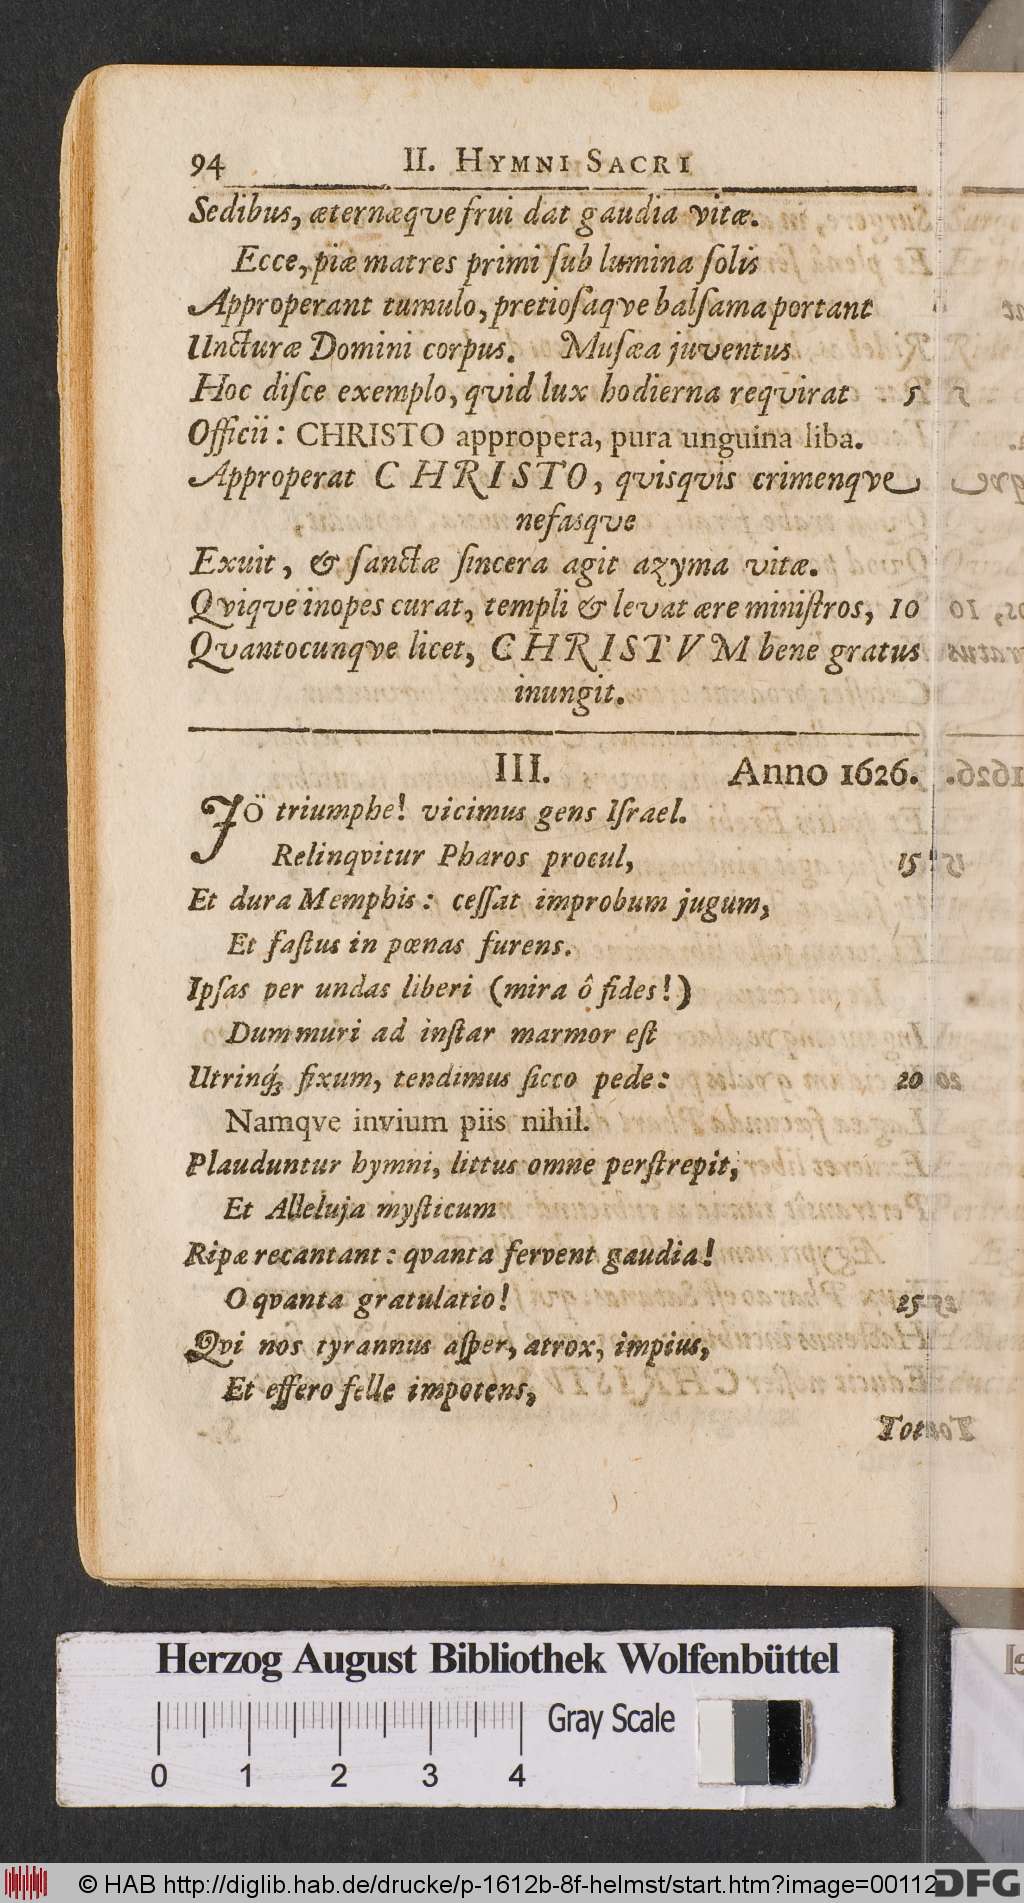 94 II. HYMNI SACRI
Sedibus, æternæqve frui dat gaudia vitæ.
Ecce, piæ matres primi ſub lumina ſolis
Approperant tumulo, pretioſaqve balſama portant
Uncturæ Domini corpus. Muſæa juventus
Hoc diſce exemplo, qvid lux hodierna reqvirat 5
Officii: CHRISTO appropera, pura unguina liba.
Approperat CHRISTO, qvisqvis crimenqve
nefasqve
Exuit, & ſanctæ ſincera agit azyma vitæ.
Qviqve inopes curat, templi & levat ære miniſtros, 10
Qvantocunqve licet, CHRISTVM bene gratus
inungit.
III. Anno 1626.
JÖ triumphe! vicimus gens Iſrael.
Relinqvitur Pharos procul, 15
Et dura Memphis: ceſſat improbum jugum,
Et faſtus in pœnas furens.
Ipſas per undas liberi (mira ô fides!)
Dum muri ad inſtar marmor eſt
Utrinq́ꝫ fixum, tendimus ſicco pede: 20
Namqve invium piis nihil.
Plauduntur hymni, littus omne perſtrepit,
Et Alleluja myſticum
Ripæ recantant: qvanta fervent gaudia!
O qvanta gratulatio! 25
Qvi nos tyrannus aſper, atrox, impius,
Et effero felle impotens,
Tot
Herzog August Bibliothek Wolfenbüttel
Gray Scale
0 1 2 3 4
© HAB http://diglib.hab.de/drucke/p-1612b-8f-helmst/start.htm?image=00112
DFG